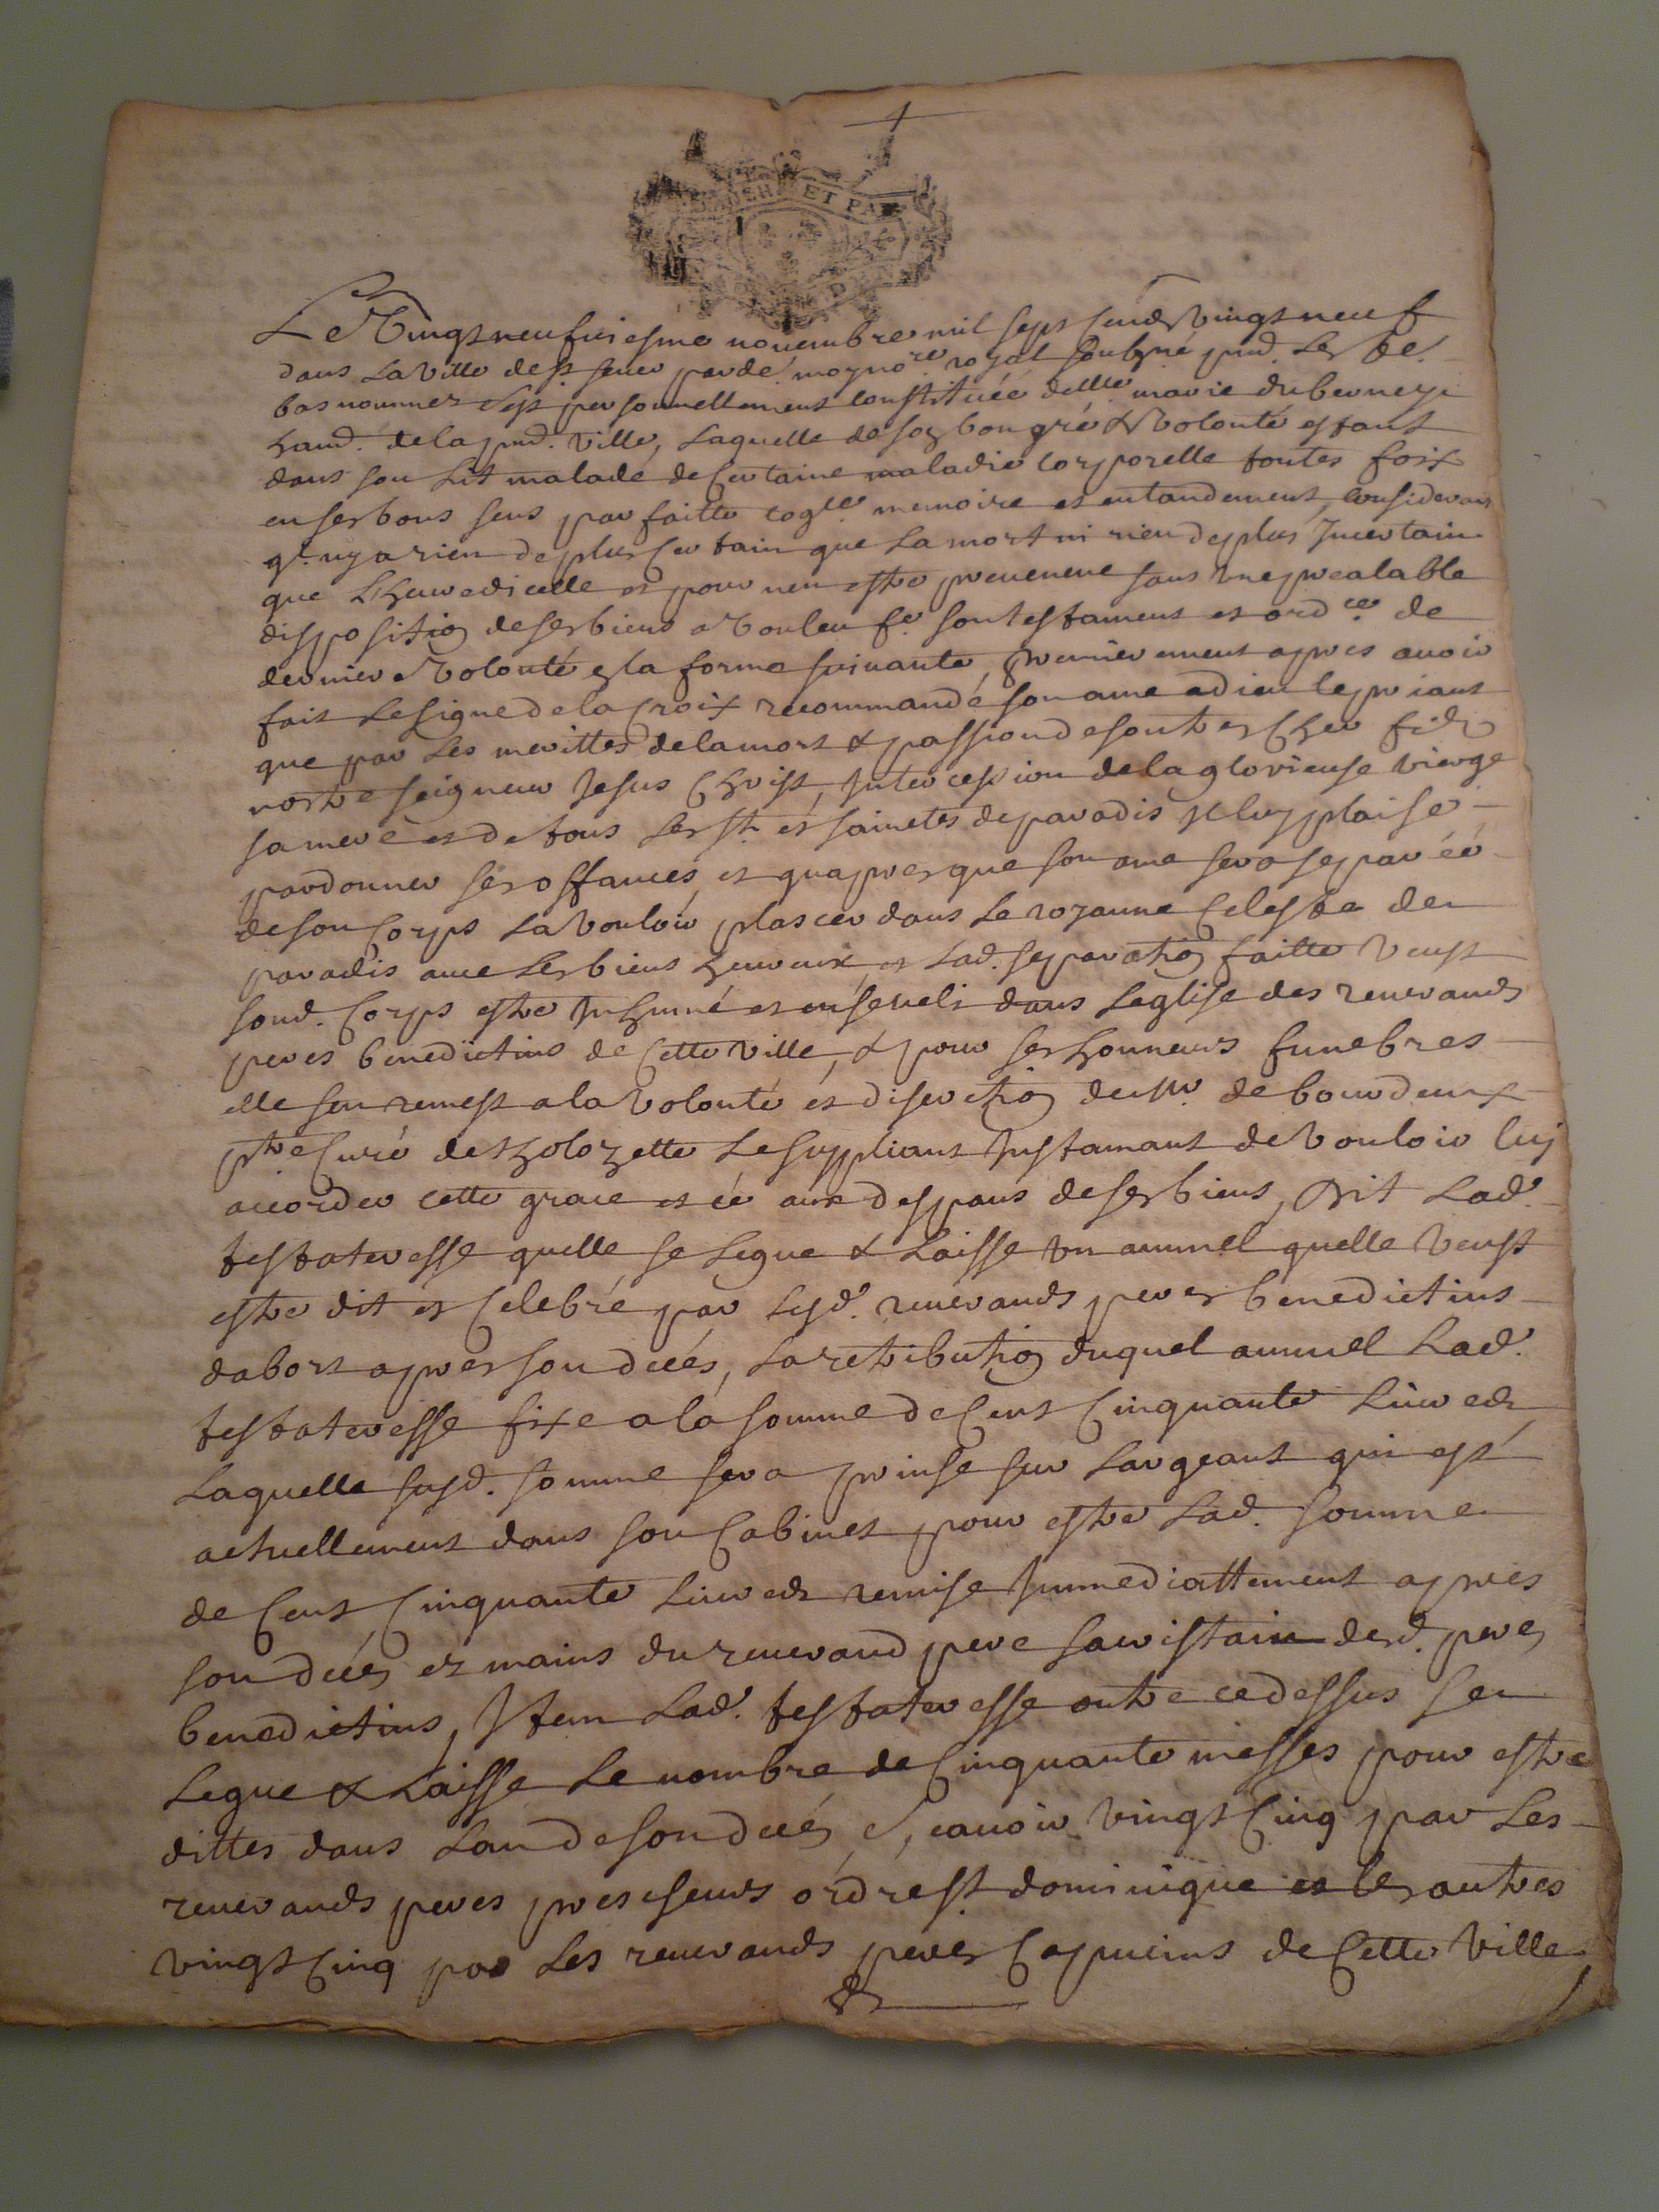 ET PA
Le Vingt neufuiesme nouembre mil sept cens Vingt neuf
dans La Ville de st seuer par dé. moy no.re royal soubzné pnd. Les te.
bas nommez s'est personnellement constituée delle marie duberney
hand. de la pnd. Ville, Laquelle de son bon gré & Volonté estant
dans son Lit malade de Certaine maladie corporelle toutes foix
en ses bons sens parfaitte cog.ce memoire et entandement, considerant
q.l ny a rien de plus Certain que La mort ni rien de plus Incertain
que Lheure dicelle et pour nen estre preuenue sans Une prealable
disposition de ses biens a Vouleu f.e son testament et ord.ce de
derniere Volonté en la forme suiuante, Premierement apres auoir
fait Le signe de la Croix recommandé son ame a dieu le priant
que par Les merittes de la mort & passion de son tres Cher fils
nostre seigneur Jesus Christ, Intercession de la glorieuse vierge
sa mere et de tous Les sts et sainctes de paradis Il luy plaise
pardonner ses offances, et quapres que son ame sera separéé
de son Corps La Vouloir plascer dans Le royaume Celeste de
paradis auec Les biens heureux, et Lad. separation faitte Veust
soud. Corps estre Inhumé et enseueli dans Leglise des reuerands
peres benedictins de Cette Ville, & pour ses honneurs funebres
elle sen remest a la Volonté et discretion de mr. de bourdeux
ptre Curé de Le suppliant Instamant de Vouloir luy
accorder cette grace et ce aux despans de ses biens, Dit Lad.
testateresse quelle se Legue & Laisse un annuel quelle Veust
estre dit et Celebré par Lesd. reuerands peres benedictins
dabort apres son decés, La retribution duquel annuel Lad.
testateresse fixe a la somme de Cent Cinquante Liures
Laquelle susd. somme sera prinse sur Largeant qui est
actuellement dans son Cabinet pour estre Lad. somme
de Cent Cinquante Liures remise Immediattement apres
son decés ez mains du reuerand pere sacristain desd. peres
benedictins, Item Lad. testateresse outre ce dessus se
Legue & Laisse Le nombre de Cinquante messes pour estre
dittes dans Lan de son decés, Scauoir Vingt Cinq par Les
reuerands peres prescheurs ordre st. dominique et les autres
vingt Cinq par Les reuerands peres Capucins de Cette Ville